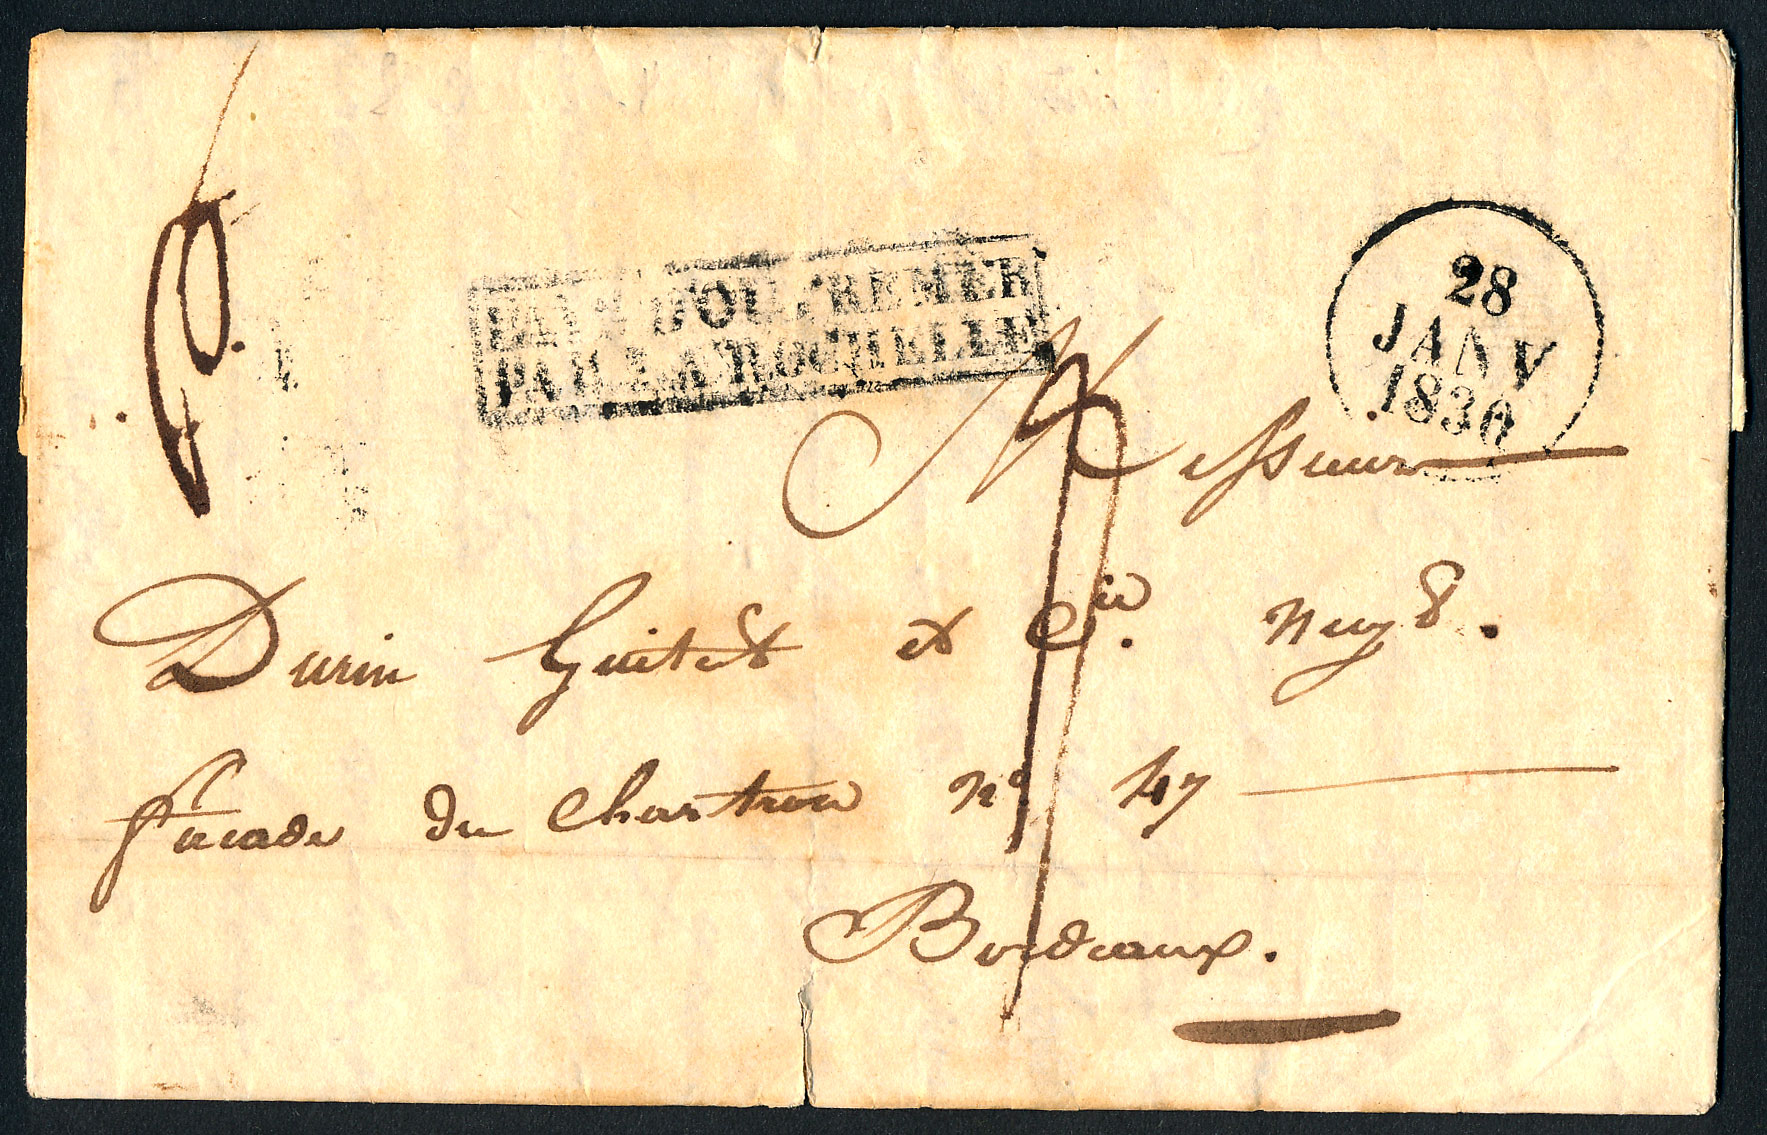 PAYS D'OUTREMER
PAR LA ROCHELLE
28
JANV
1830
Messieurs
Durin Guitet et Cie. Neg.
façade du Chartron No. 47
Bordeaux.